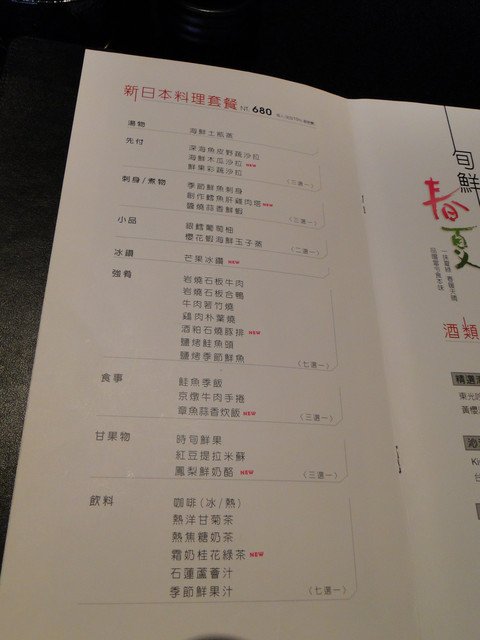 新日本料理套餐 NT. 680
湯物 海鮮土瓶蒸
先付 深海魚皮野蔬沙拉
海鮮木瓜沙拉 NEW
鮮果彩蔬沙拉 (三選一)
刺身/煮物 季節鮮魚刺身
創作鱈魚肝雞肉塔 NEW
醬燒蒜香鮮蝦 (三選一)
小品 銀鱈葡萄柚
櫻花蝦海鮮玉子蒸 (二選一)
冰鑽 芒果冰鑽 NEW
強肴 岩燒石板牛肉
岩燒石板合鴨
牛肉若竹燒
雞肉朴葉燒
酒粕石燒豚排 NEW
鹽烤鮭魚頭
鹽烤季節鮮魚 (七選一)
食事 鮭魚季飯
京燉牛肉手捲
章魚蒜香炊飯 NEW (三選一)
甘果物 時旬鮮果
紅豆提拉米蘇
鳳梨鮮奶酪 NEW (三選一)
飲料 咖啡(冰/熱)
熱洋甘菊茶
熱焦糖奶茶
霜奶桂花綠茶 NEW
石蓮蘆薈汁
季節鮮果汁 (七選一)
旬鮮
春夏
品嚐當令食本味
酒類
精選